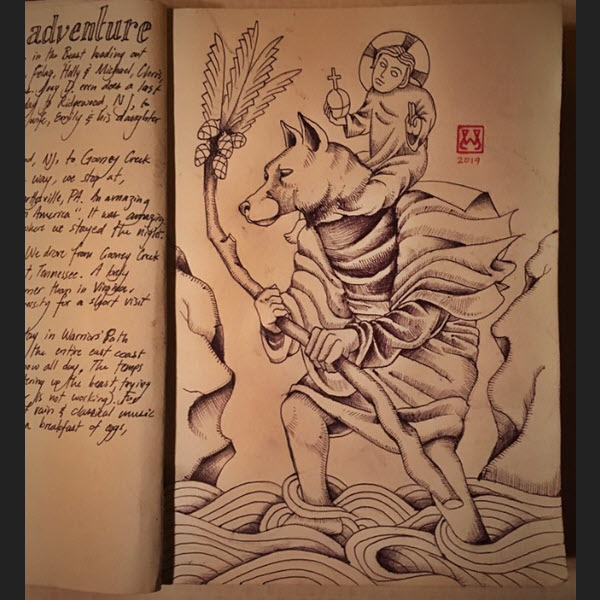 adventure
in the Beast heading out
Holly & Michael, Chris,
Amy D. even does a last
Ridgewood, NJ, to
wife, Emily & his daughter
NJ, to Cooney Creek
way, we stop at,
ville, PA. An amazing
America". It was amazing
where we stayed the night.
We drove from Cooney Creek
Tennessee. A body
mer than in Virginia,
for a short visit
in Warriors' Path
the entire east coast
ow all day. The temps
ering up the beast, trying
is not working). For
rain & classical music
a breakfast of eggs,
2019